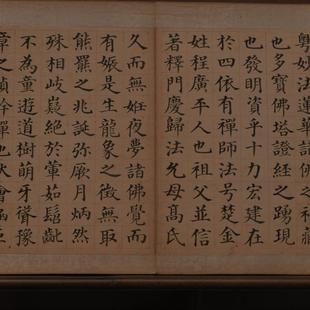 粵妙法蓮華諸佛之秘藏
也多寶佛塔證經之踴現
也發明資乎十力宏建在
於四依有禪師法号楚金
姓程廣平人也祖父並信
著釋門慶歸法允母髙氏
久而無姙夜夢諸佛覺而
有娠是生龍象之徵無取
熊羆之兆誕彌厥月炳然
殊相岐嶷絕於葷茹髫齔
不為童遊道樹萌牙聳豫
章之楨幹禪池畎澮涵巨